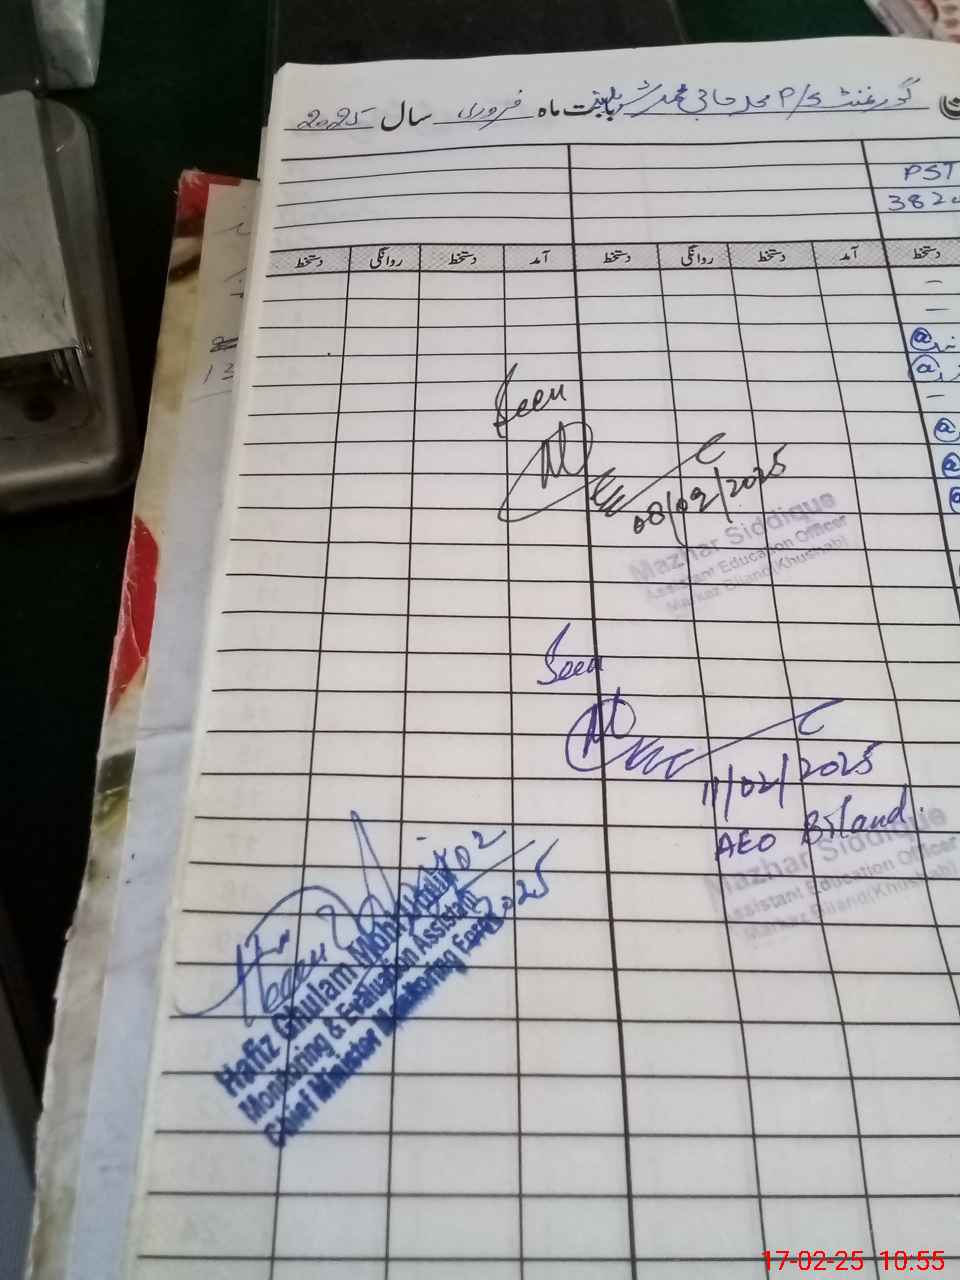 گورنمنٹ P/S محلہ حاجی محمد بابت ماہ فروری سال 2025
PST
382
دستخط آمد دستخط روانگی دستخط آمد دستخط روانگی دستخط
Seen
08/02/2025
Mazhar Siddique
Assistant Education Officer
Markaz Biland(Khushab)
Seen
11/02/2025
AEO Biland
Mazhar Siddique
Assistant Education Officer
Markaz Biland(Khushab)
Seen
Hafiz Ghulam Mohyuddin
Monitoring & Evaluation Assistant
Chief Minister Monitoring Force
17-02-25 10:55